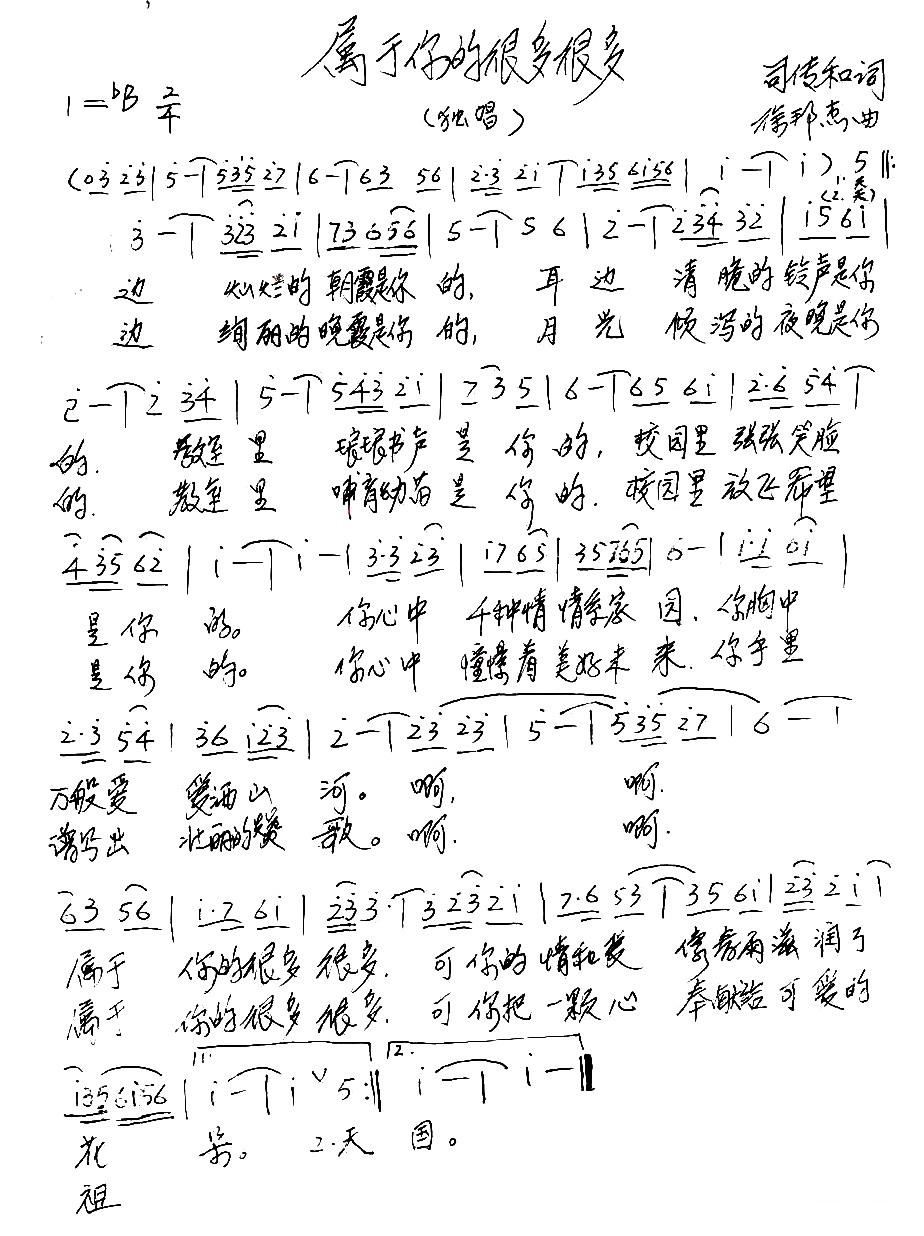 属于你的很多很多
1=♭B 2/4
(独唱)
司传和词
徐邦杰曲
(0 3̇ 2̇3̇ | 5̇ - | 5̇3̇5̇ 2̇7 | 6 - | 63 56 | 2̇·3̇ 2̇i | i35 6i56 | i - | i) 5 ‖:
1. 天
(2. 天)
3̇ - | 3̇2̇3̇ 2̇i | 73 656 | 5 - | 5 6 | 2̇ - | 2̇3̇4̇ 3̇2̇ | i5 6i |
边 灿烂的朝霞是你 的, 耳边 清脆的铃声是你
边 绚丽的晚霞是你 的, 月光 倾泻的夜晚是你
2̇ - | 2̇ 3̇4̇ | 5̇ - | 5̇4̇3̇ 2̇i | 7 3 5 | 6 - | 65 6i | 2̇·6 5̇4̇ |
的. 教室里 琅琅书声是你的, 校园里张张笑脸
的. 教室里 哺育幼苗是你的. 校园里放飞希望
4̇ 3̇5̇ 6̇2̇ | i - | i - | 3̇·3̇ 2̇3̇ | i7 65 | 35 765 | 6 - | i·i 0i |
是你 的。 你心中 千种情情系家园. 你胸中
是你 的。 你心中 憧憬着美好未来. 你手里
2̇·3̇ 5̇4̇ | 3̇6 i2̇3̇ | 2̇ - | 2̇3̇ 2̇3̇ | 5̇ - | 5̇3̇5̇ 2̇7 | 6 - |
万般爱 爱洒山河。啊, 啊.
谱写出 壮丽的赞歌。啊. 啊.
63 56 | i·7 6i | 2̇3̇ 3̇· | 3̇ 2̇3̇ 2̇i | 7·6 53 | 35 6i | 2̇3̇ 2̇ i |
属于 你的很多很多. 可你的情和爱 像春雨滋润了
属于 你的很多很多. 可你把一颗心 奉献给可爱的
i35 6i56 | 1. i - | i ∨ 5 :‖ 2. i - | i - ‖
花 朵。 2.天 国。
祖